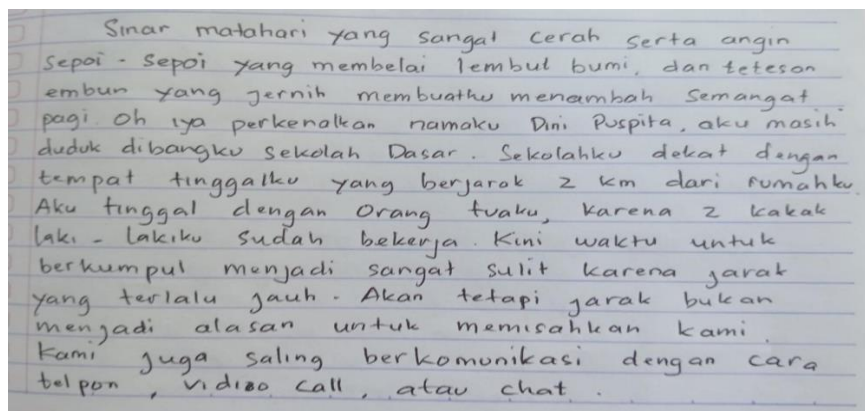 Sinar matahari yang sangat cerah serta angin
sepoi - sepoi yang membelai lembut bumi, dan tetesan
embun yang jernih membuatku menambah semangat
pagi. Oh iya perkenalkan namaku Dini Puspita, aku masih
duduk dibangku sekolah Dasar. Sekolahku dekat dengan
tempat tinggalku yang berjarak 2 km dari rumahku.
Aku tinggal dengan orang tuaku, karena 2 kakak
laki - lakiku sudah bekerja. Kini waktu untuk
berkumpul menjadi sangat sulit karena jarak
yang terlalu jauh. Akan tetapi jarak bukan
menjadi alasan untuk memisahkan kami.
Kami juga saling berkomunikasi dengan cara
telpon, vidieo call, atau chat.